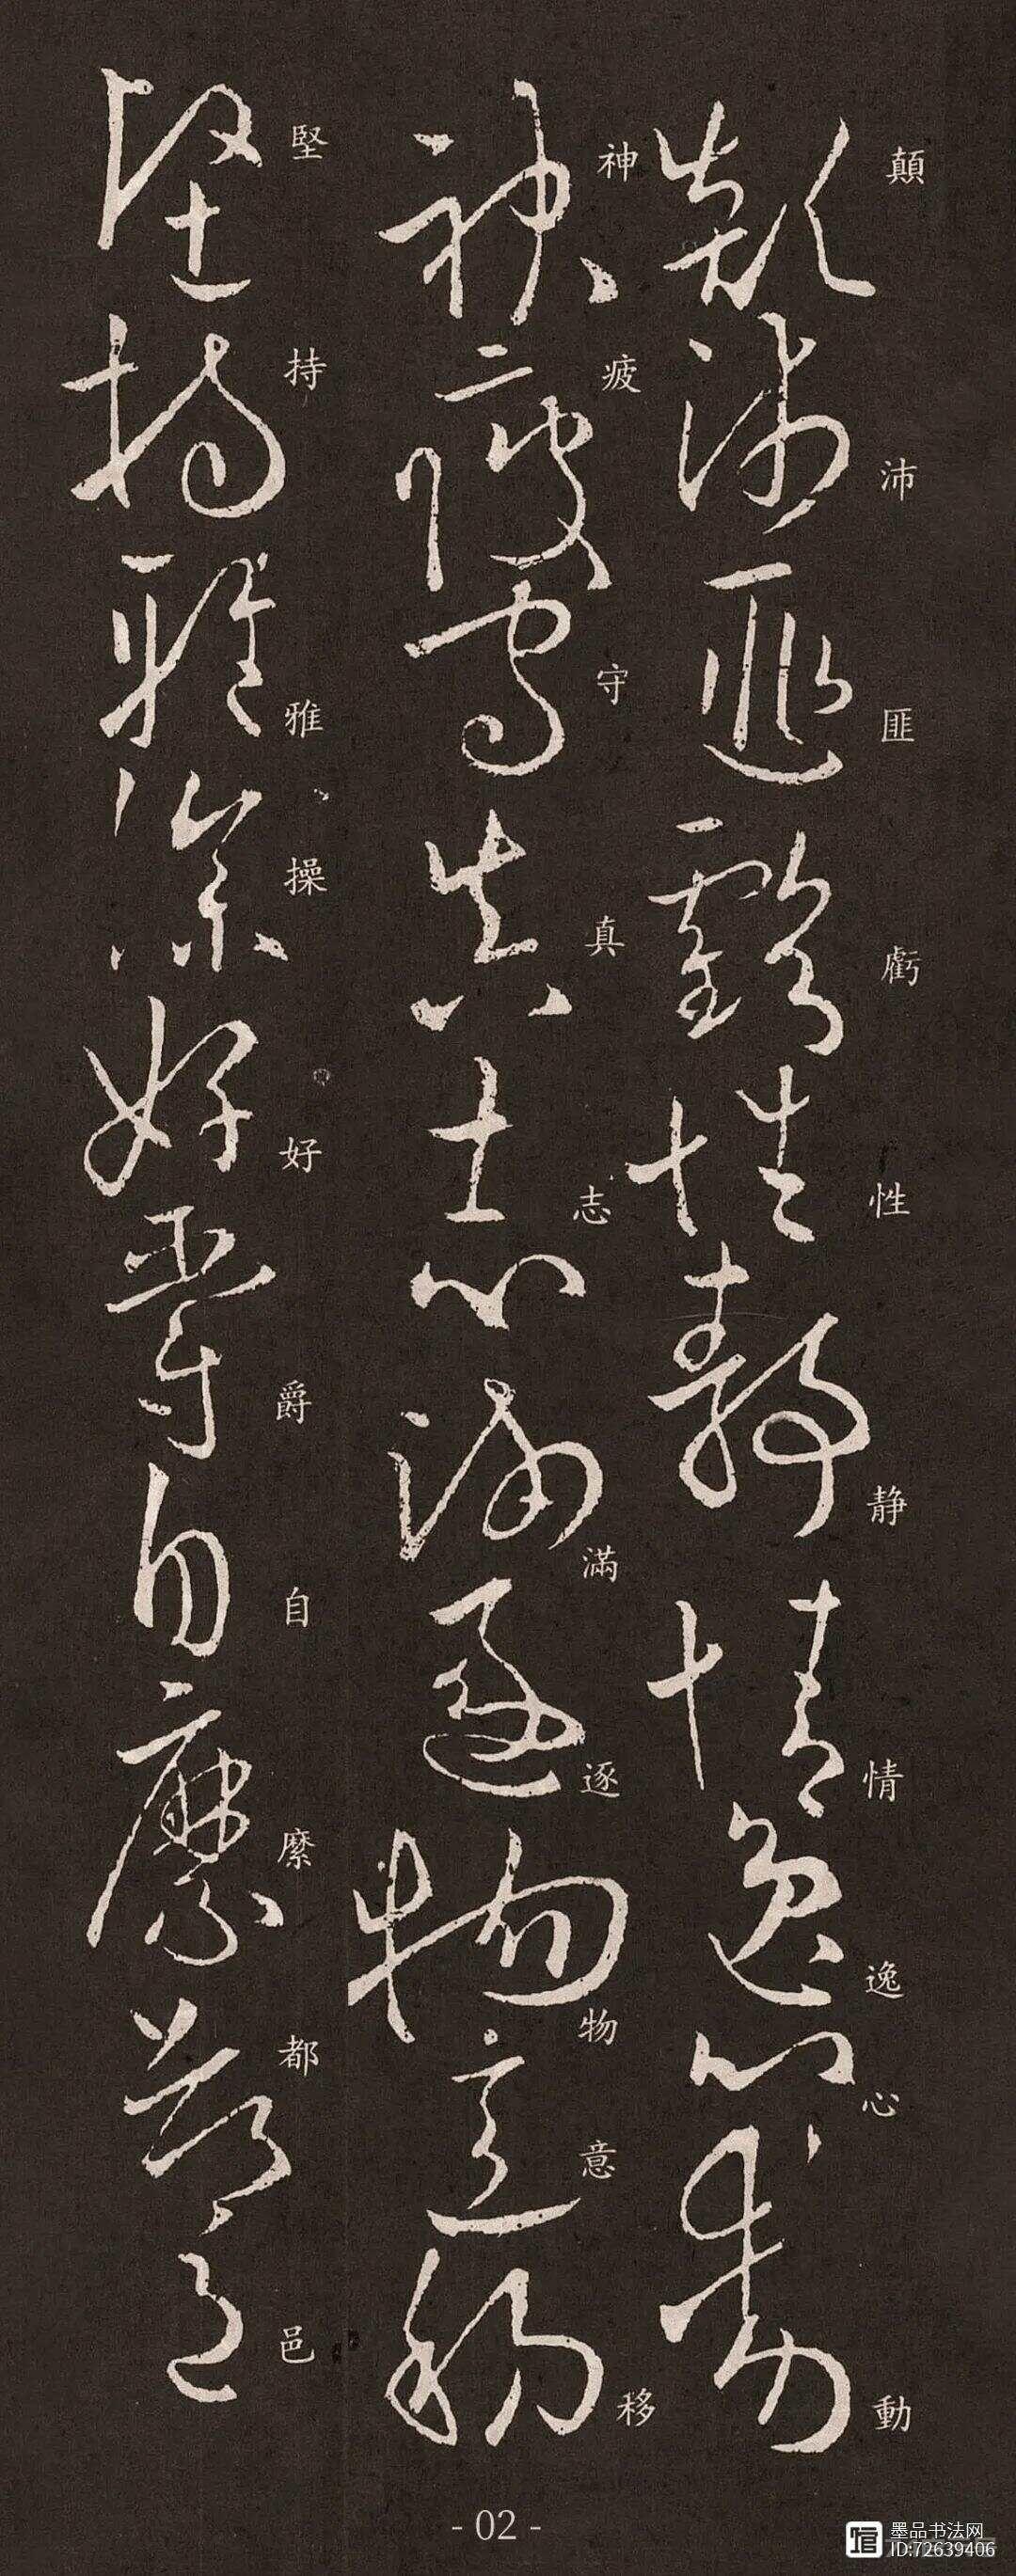 顛沛匪虧性静情逸心動
神疲守真志滿逐物意移
堅持雅操好爵自縻都邑
- 02 -
墨品书法网
ID:72639406